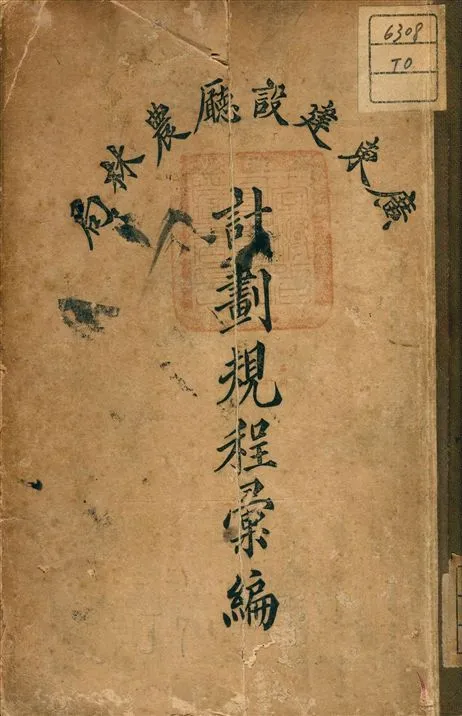 廣東建設廳農林局
計劃規程彙編
6308
TO